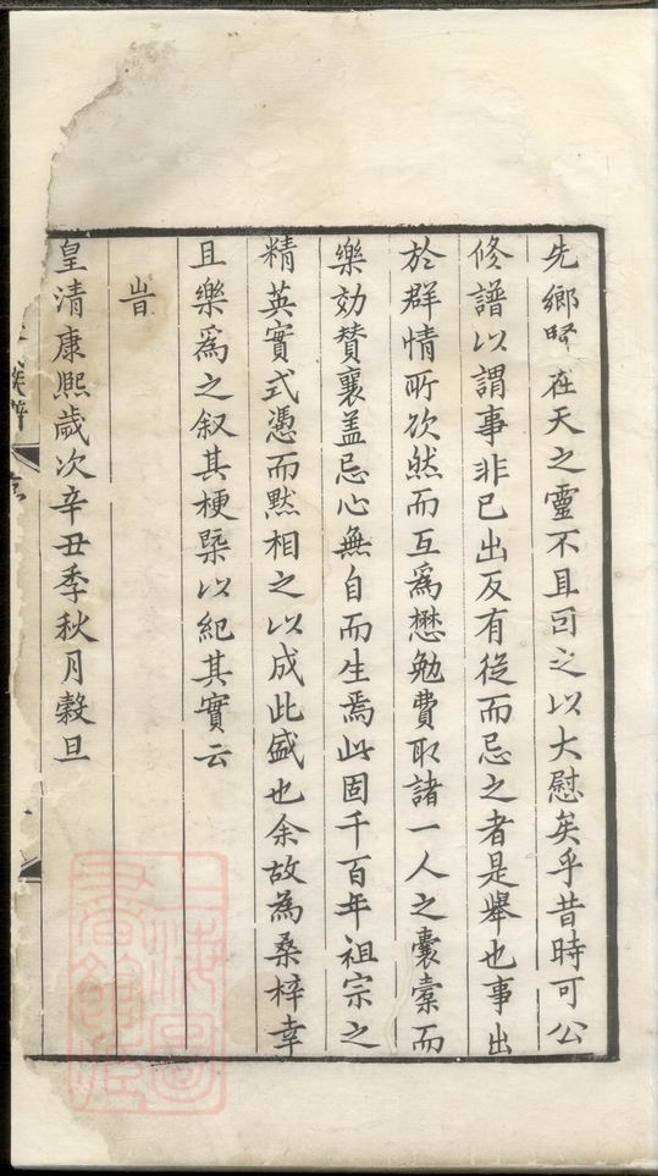 先鄉賢在天之靈不且因之以大慰矣乎昔時可公
修譜以謂事非已出反有從而忌之者是舉也事出
於群情所欣然而互為懋勉費取諸一人之囊橐而
樂効賛襄盖忌心無自而生焉此固千百年祖宗之
精英實式憑而默相之以成此盛也余故為桑梓幸
且樂爲之叙其梗槩以紀其實云
旹
皇清康熙歲次辛丑季秋月穀旦
氏族譜
上海圖
書館藏